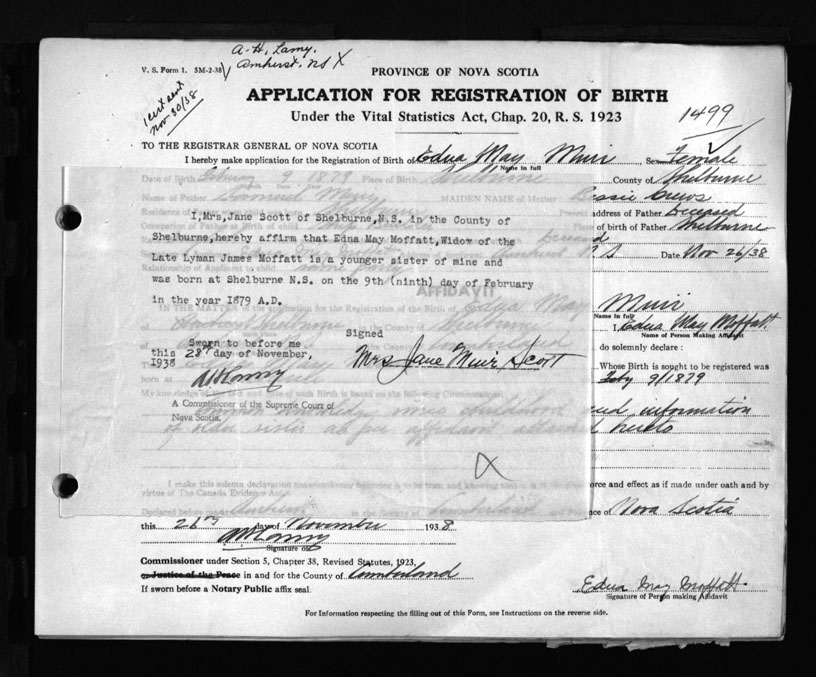 A. H. Lamy.
Amherst. NS X
V. S. Form 1. 5M-2-38
1 cert sent
Nov 30/38
PROVINCE OF NOVA SCOTIA
APPLICATION FOR REGISTRATION OF BIRTH
Under the Vital Statistics Act, Chap. 20, R. S. 1923
1499
TO THE REGISTRAR GENERAL OF NOVA SCOTIA
I hereby make application for the Registration of Birth of Edna May Muir Sex Female
Name in full
Date of Birth February 9 1879 Place of Birth Shelburne County of Shelburne
Name of Father Samuel MAIDEN NAME of Mother Bessie Crews
Present address of Father Deceased
Place of birth of Father Shelburne
N S Date Nov 26/38
I, Mrs, Jane Scott of Shelburne, N.S. in the County of
Shelburne, hereby affirm that Edna May Moffatt, Widow of the
Late Lyman James Moffatt is a younger sister of mine and
was born at Shelburne N.S. on the 9th (ninth) day of February
in the year 1879 A.D.
Sworn to before me
this 28th day of November,
1938
Signed
Mrs Jane Muir Scott
A Commissioner of the Supreme Court of
Nova Scotia.
X
AFFIDAVIT
IN THE MATTER of the application for the Registration of Birth of Edna May Muir
Name in full
I, Edna May Moffatt.
Name of Person Making Affidavit
do solemnly declare :
Whose Birth is sought to be registered was
Feby 9/1879
My knowledge of the
of Birth is based on the following Circumstances
childhood and information
of older sister as per affidavit attached hereto
I make this solemn declaration conscientiously believing it to be true, and knowing that it is of the same force and effect as if made under oath and by
virtue of The Canada Evidence Act.
Declared before me at Amherst in the County of Cumberland Province of Nova Scotia
this 26th day of November 1938
Signature of
Commissioner under Section 5, Chapter 38, Revised Statutes, 1923,
or Justice of the Peace in and for the County of Cumberland
If sworn before a Notary Public affix seal.
Edna May Moffatt
Signature of Person making Affidavit
For Information respecting the filling out of this Form, see Instructions on the reverse side.